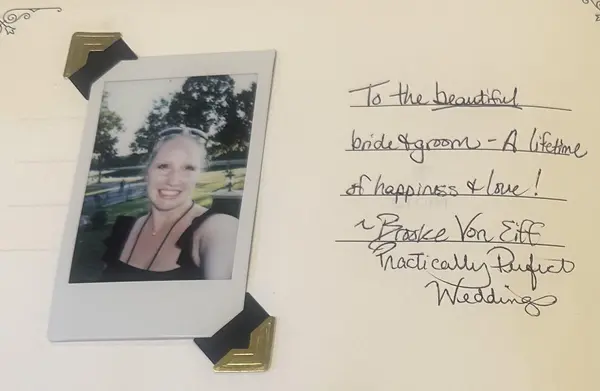 To the beautiful
bride & groom - A lifetime
of happiness & love!
~ Brooke Von Eiff
Practically Perfect
Weddings